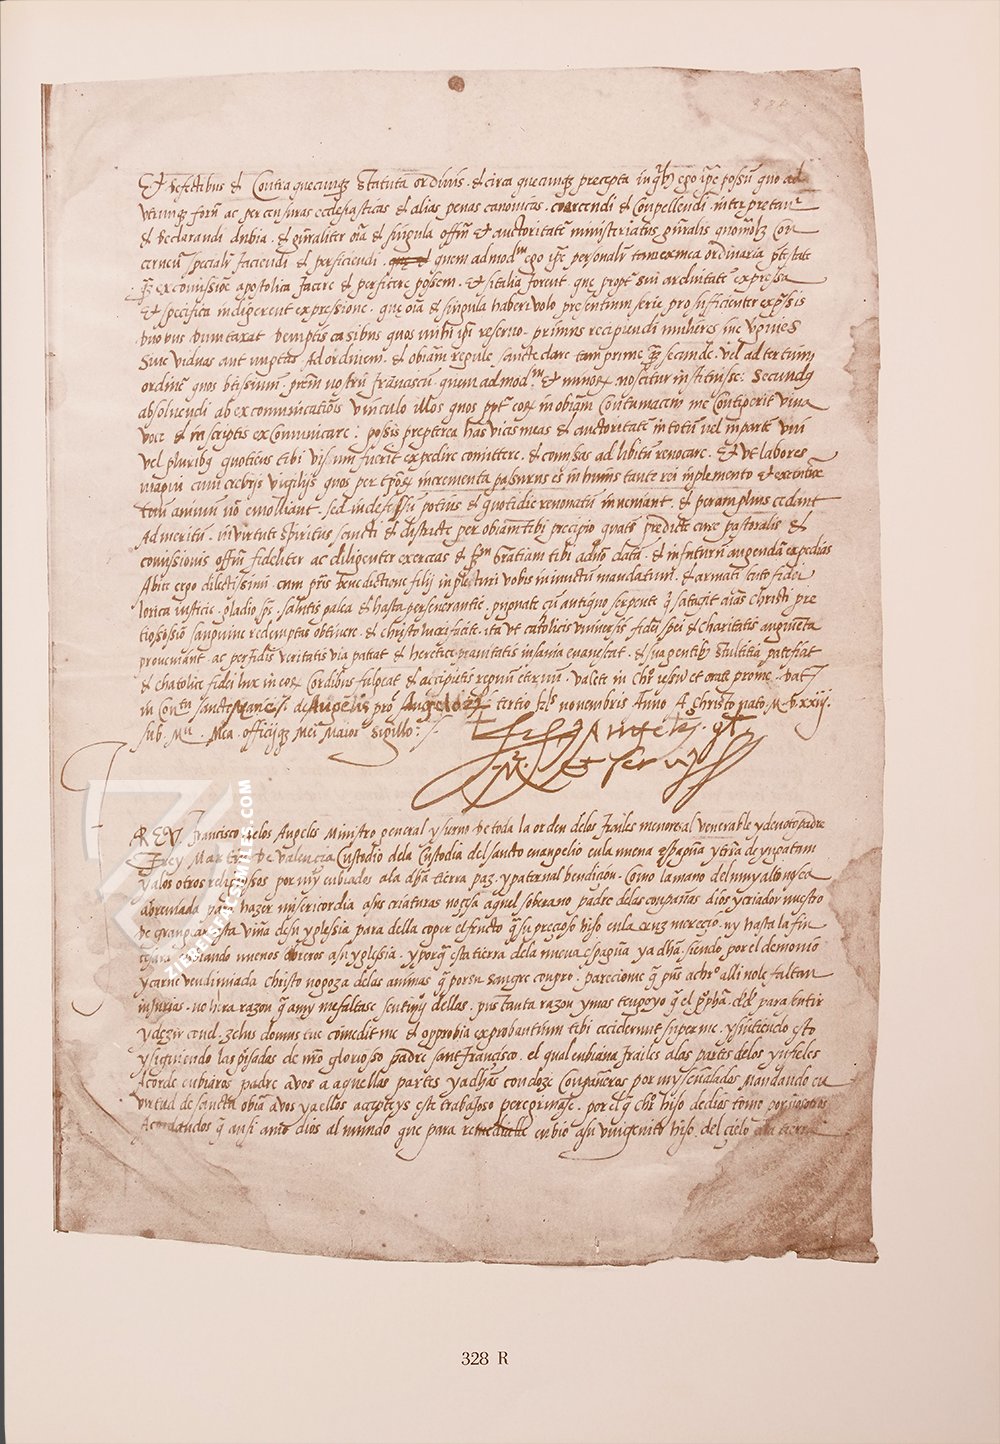 Et defectibus et Contra quecunqz statuta ordinis et circa quecunqz precepta in qbz ego ipe possū quo ad
utrunqz forū ac per censuras ecclesiasticas et alias penas canonicas coercendi et Conpellendi interpretan
et declarandi dubia et gnraliter oīa et singula offm et auctoritate ministeriatus gnralis
cernen speciali faciendi et perficiendi quem admodm ego ipe personalr
ex comissiōe apostolica facere et perficere possem et si talia forent que propt sui arduitate expressa
et specifica indigerent expressione que oīa et singula haberi volo presentium serie pro sufficienter exp̄sis
duobus duntaxat demptis casibus quos mihi ipi reservo primus recipiendi mulieres sive virgines
Sive viduas aut nuptas ad ordinem et obiam regule sancte clare tam prime qz secunde vel ad tertium
ordinē quos btissimus pr̄em nostrū franciscū quem admodm et minorz noscitur instituisse: Secundus
absolvendi ab excomunicatiōis vinculo illos quos ppt eorz inobiam Contumacem me Contigerit viva
voce et in scriptis exComunicare: possis preptereа has vices meas et auctoritate in totū vel in parte uni
vel pluribus quoties tibi visum fuerit expedire comittere et comissas ad libitum revocare Et ut labores
magni cum crebris vigilijs quos per tp̄orz incrementa passurus es in huius tante rei inplemento et executiōe
tuum animum nō emolliant sed indefessū potius et quotidie renovatum inveniant et per amplius cedant
Ad meritum in virtute spiritus sancti et districte per obiam tibi precipio quatenus predicte cure pastoralis et
comissionis offm fideliter ac diligenter exerceas et gratiam tibi adeo data et in futurū augendā expedias
Abite ergo dilectissimi cum pris benedictione filij inpleturi vobis iniunctum mandatum et armati scuto fidei
lorica iusticie gladio sps salutis galea et hasta perseverantie pugnate cū antiquo serpente q satagit aias Christi pre
tiosissimo sanguine redemptas obtinere et christo lucrifacite ita ut catolicis universis fidei spei et charitatis augmēta
proveniant ac perfidis veritatis via pateat et heretice pravitatis insania evanescat et sua gentibz stultitia patefiat
et chatolice fidei lux in eorz cordibus fulgeat et accipietis regnum eternum Valete in Chr̄o iesu et orate pro me Dat
in Conven sancte Marie de Angelis pro Angelorz tertio kls novembris Anno A Christo nato M d xxiij
sub Mea officijqz Mei Maior sigillo:
Fr̄ F Angelus gl
Mr et servus
Fr̄ey francisco de los Angeles Ministro general y siervo de toda la orden de los frailes menores al venerable y devoto padre
frey Martin de Valencia Custodio dela Custodia del santo evangelio en la nueva españa y trra de yucatam
y a los otros religiosos por my enbiados ala dha tierra paz y paternal bendicion Como la mano del muy alto no sea
abreviada para hazer misericordia a sus criaturas no cessa aquel soberano padre delas conpañas dios y criador nuestro
de grangear esta viña de su yglesia para della coger el fructo q su precioso hijo en la cruz merecio ny hasta la fin
çesara enbiando nuevos obreros a su yglesia y porq esta tierra dela nueva españa ya dha siendo por el demonio
y carne vendimiada christo no goza delas animas q por su sangre conpro pareciome q pus a chro alli no le faltan
injurias no hera razon q a my me faltase sentimyo dellas pus tanta razon y mas tengo yo q el propha para sentir
y dezir con el zelus domus tue comedit me et opprobia exprobantium tibi ceciderunt super me y sintiendo esto
y siguiendo las pisadas de nro glorioso padre sant francisco el qual enbiava frailes alas partes delos ynfieles
Acorde enbiaros padre a vos a aquellas partes ya dhas con doze Conpañeros por my señalados Mandando en
virtud de sancta obia a vos y a ellos acepteys este trabajoso peregrinaje por el q chro hijo de dios tomo por nosotros
Acordandos q ansi amo dios al mundo que para remediarle enbio a su unigenito hijo del cielo ala tierra
328 R
ZIEREIS FACSIMILES.COM